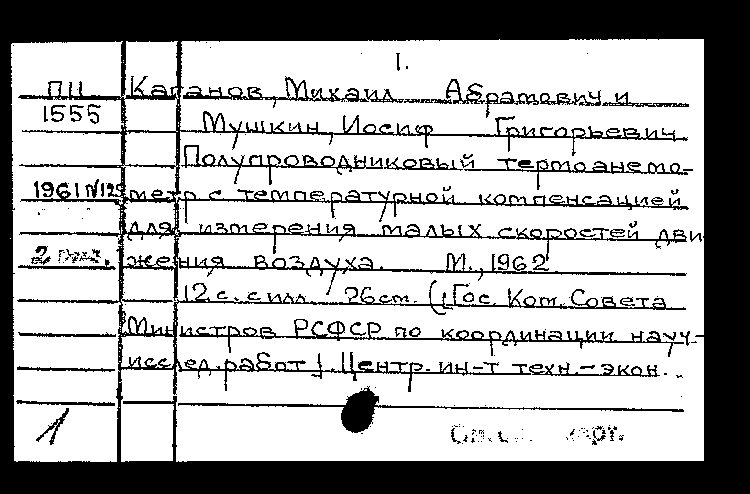 I.
П11 Каганов, Михаил Абрамович и
1555 Мушкин, Иосиф Григорьевич
Полупроводниковый термоанемо-
1961 №125 метр с температурной компенсацией
для измерения малых скоростей дви
2 экз. жения воздуха. М., 1962
12 с. с илл. 26 см. (Гос. Ком. Совета
Министров РСФСР по координации науч-
исслед. работ. Центр. ин-т техн.-экон.
1